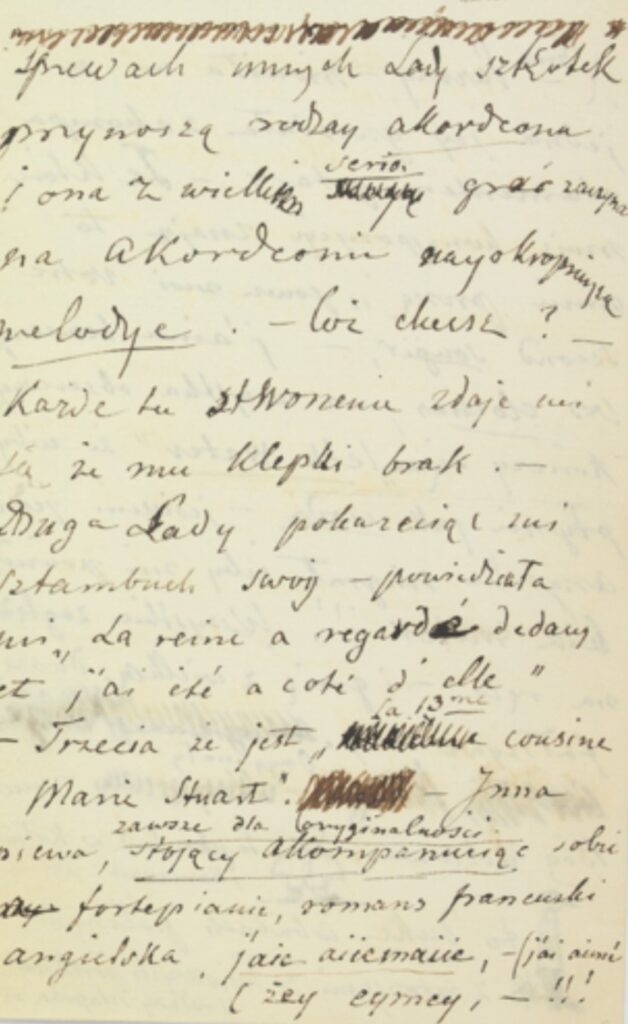 śpiewach innych Lady szkotek
przynoszą rodzay akordeonu
i ona z wielkim serio grać zaczyna
na akordeonie nayokropniejszą
melodye. — Cóż chcesz? —
Każde tu stworzenie zdaje mi
się że mu klepki brak. —
Druga Lady pokazując mi
sztambuch swoy — powiedziała
mi „La reine a regardé dedans
et j'ai été a coté d'elle"
— Trzecia że jest „la 13me cousine
Marie Stuart". — Jnna
śpiewa, zawsze dla oryginalności
stojący akompaniując sobie
fortepianie, romans francuski
angielska, jaie aiiemaiie, — (j'ai aimé
(żey eymey, — !!!